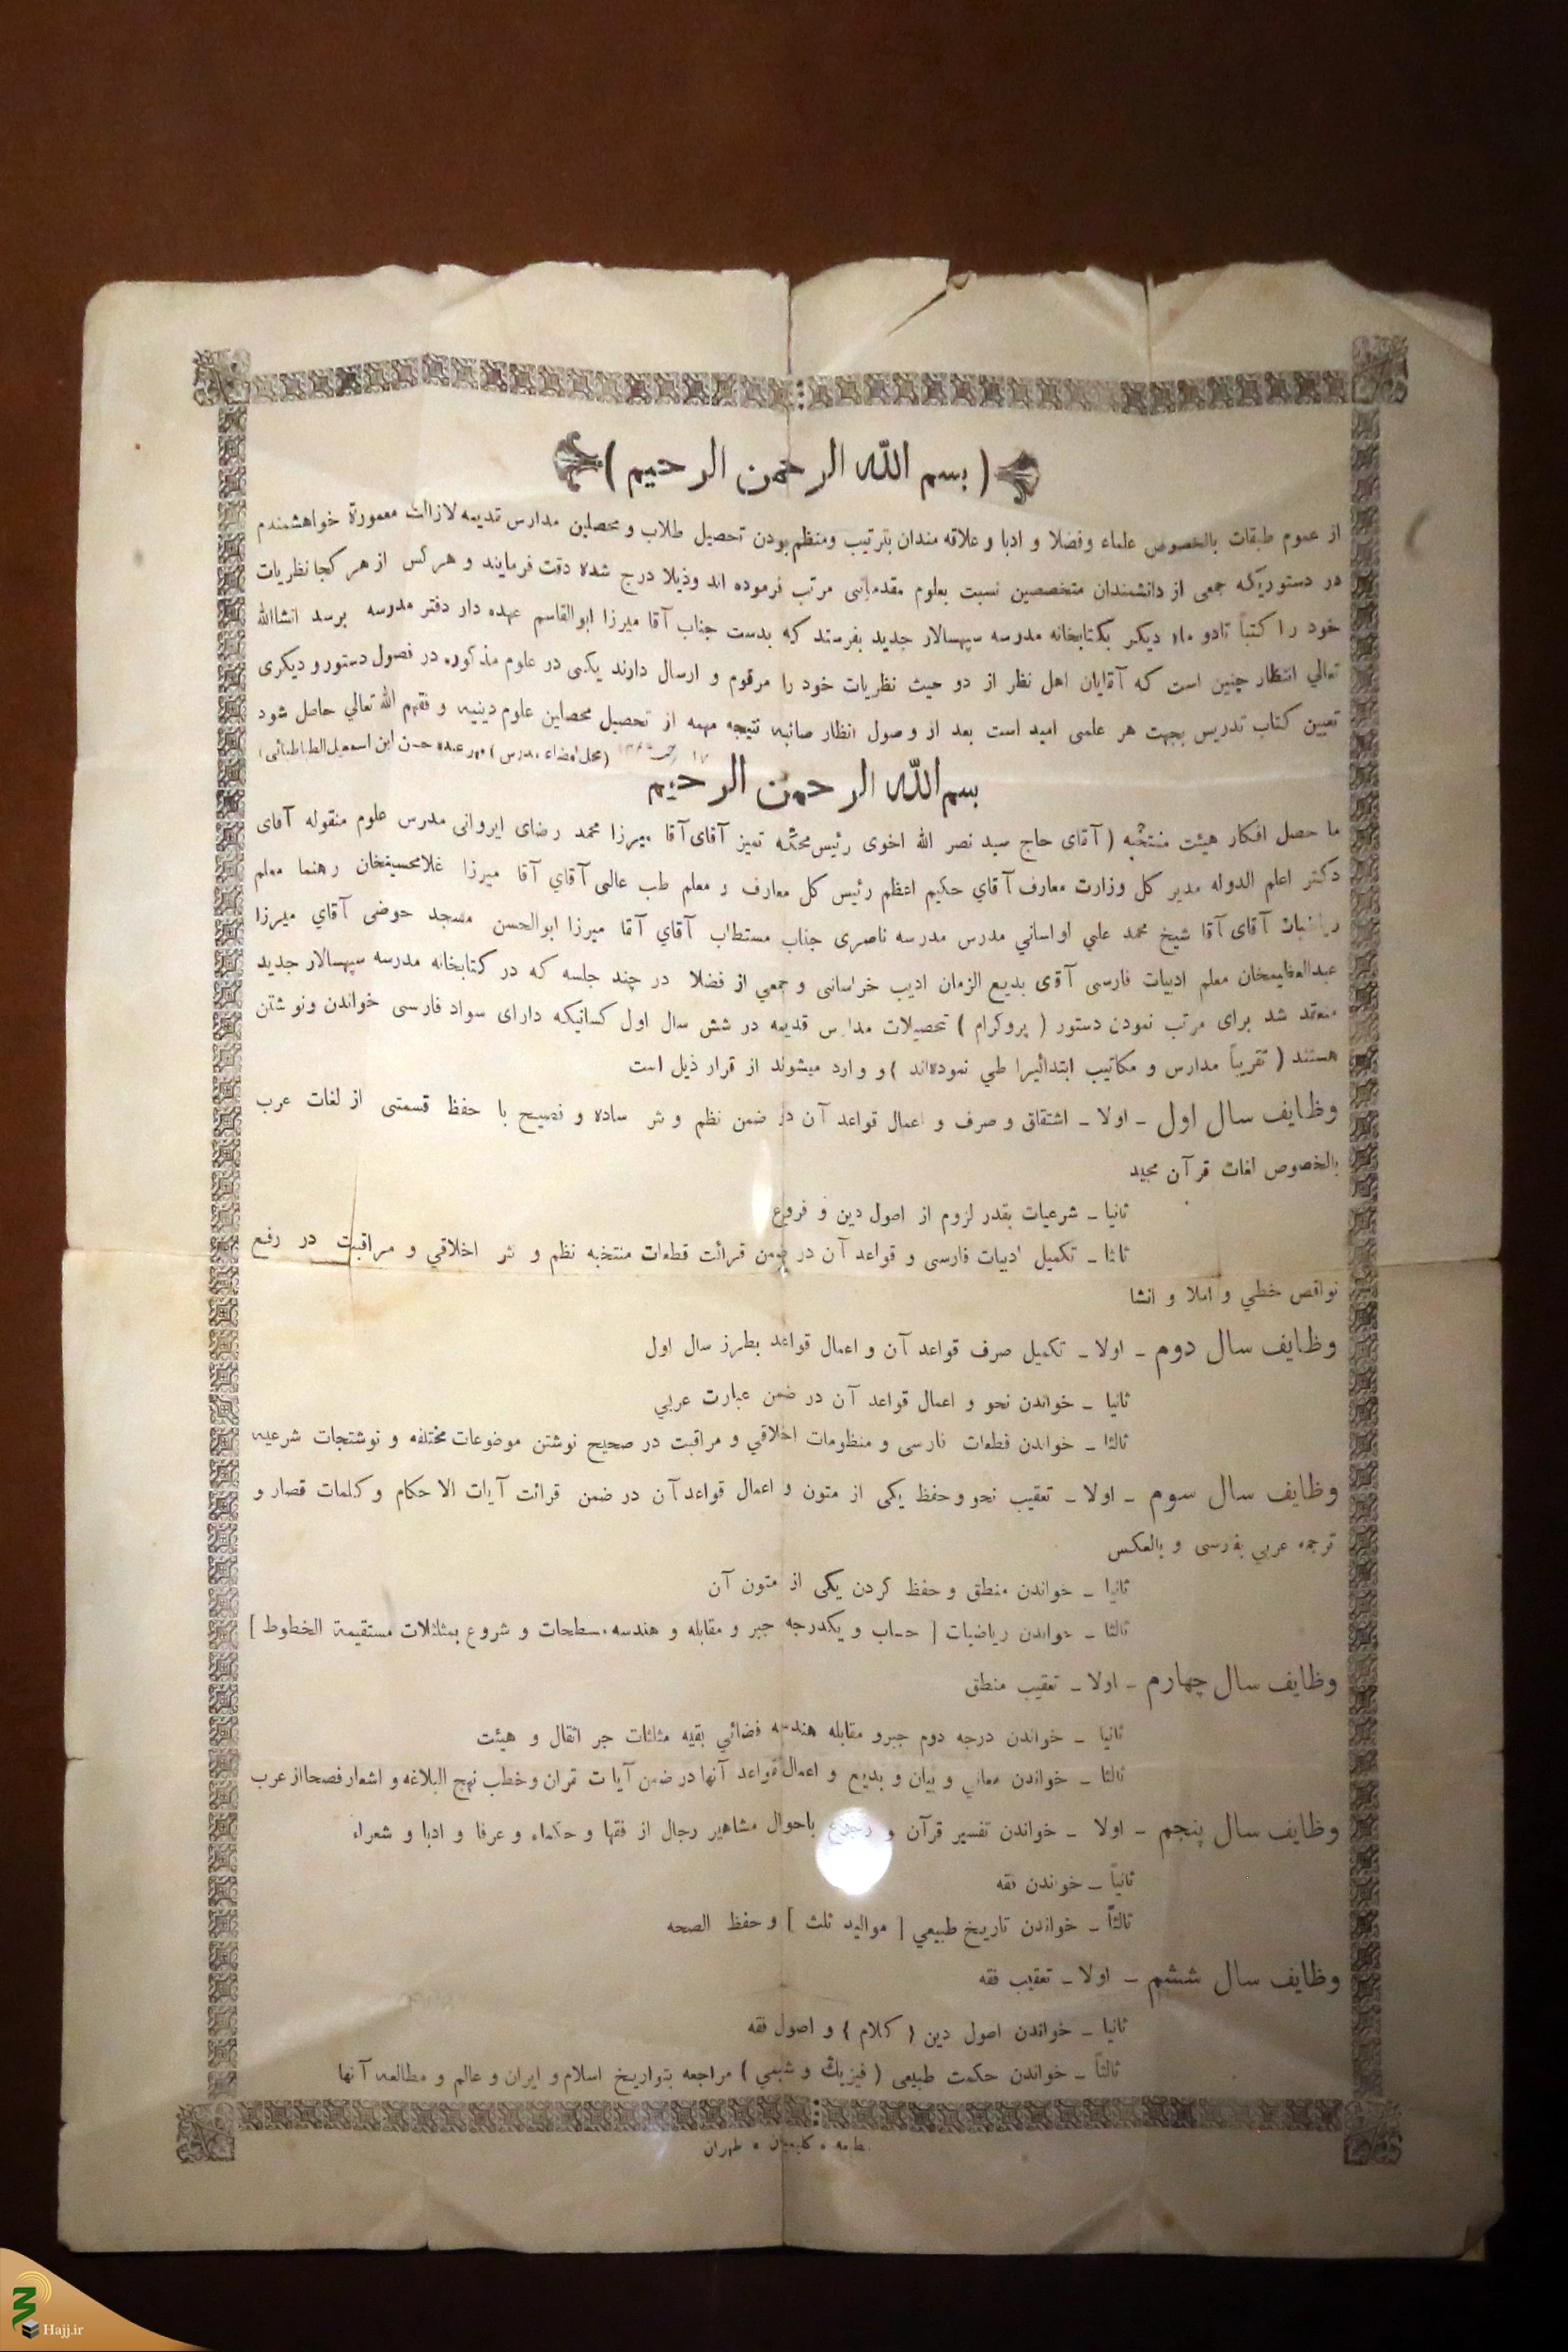 ( بسم الله الرحمن الرحیم )
از عموم طبقات بالخصوص علماء وفضلا و ادبا و علاقه مندان بترتیب ومنظم بودن تحصیل طلاب و محصلین مدارس قدیمه لازالت معمورة خواهشمندم
در دستوریکه جمعی از دانشمندان متخصصین نسبت بعلوم مقدماتی مرتب فرموده اند وذیلا درج شده دقت فرمایند و هر کس از هر کجا نظریات
خود را کتباً تادو ماه دیگر بکتابخانه مدرسه سپهسالار جدید بفرستد که بدست جناب آقا میرزا ابوالقاسم عهده دار دفتر مدرسه برسد انشاالله
تعالي انتظار چنین است که آقایان اهل نظر از دو حیث نظریات خود را مرقوم و ارسال دارند یکی در علوم مذکوره در فصول دستور و دیگری
تعیین کتاب تدریس بجهت هر علمی امید است بعد از وصول انظار صائبه نتیجه مهمه از تحصیل محصلین علوم دینیه و فقهم الله تعالي حاصل شود
۱۷ (محل امضاء مدرس) مهر عبده حسن ابن اسمعیل الطباطبائی
بسم الله الرحمن الرحیم
ما حصل افکار هیئت منتخبه ( آقای حاج سید نصر الله اخوی رئیس محکمه تمیز آقای آقا میرزا محمد رضای ایروانی مدرس علوم منقوله آقای
دکتر اعلم الدوله مدیر کل وزارت معارف آقاي حکیم اعظم رئیس کل معارف و معلم طب عالی آقاي آقا میرزا غلامحسینخان رهنما معلم
ریاضیات آقای آقا شیخ محمد علی لواساني مدرس مدرسه ناصری جناب مستطاب آقاي آقا میرزا ابوالحسن مسجد حوضی آقاي میرزا
عبدالعظیمخان معلم ادبیات فارسی آقای بدیع الزمان ادیب خراسانی و جمعي از فضلا در چند جلسه که در کتابخانه مدرسه سپهسالار جدید
منعقد شد برای مرتب نمودن دستور ( پروکرام ) تحصیلات مدارس قدیمه در شش سال اول کسانیکه دارای سواد فارسی خواندن ونوشتن
هستند ( تقریباً مدارس و مکاتیب ابتدائیرا طي نموده‌اند ) و وارد میشوند از قرار ذیل است
وظایف سال اول ـ اولا ـ اشتقاق و صرف و اعمال قواعد آن در ضمن نظم و نثر ساده و فصیح با حفظ قسمتی از لغات عرب
بالخصوص لغات قرآن مجید
ثانیا ـ شرعیات بقدر لزوم از اصول دین و فروع
ثالثا ـ تکمیل ادبیات فارسی و قواعد آن در ضمن قرائت قطعات منتخبه نظم و نثر اخلاقي و مراقبت در رفع
نواقص خطي و املا و انشا
وظایف سال دوم ـ اولا ـ تکمیل صرف قواعد آن و اعمال قواعد بطرز سال اول
ثانیا ـ خواندن نحو و اعمال قواعد آن در ضمن عبارت عربي
ثالثا ـ خواندن قطعات فارسی و منظومات اخلاقي و مراقبت در صحیح نوشتن موضوعات مختلفه و نوشتجات شرعیه
وظایف سال سوم ـ اولا ـ تعقیب نحو و حفظ یکی از متون و اعمال قواعد آن در ضمن قرائت آیات الاحکام و کلمات قصار و
ترجمه عربي بفارسی و بالعکس
ثانیا ـ خواندن منطق و حفظ کردن یکی از متون آن
ثالثا ـ خواندن ریاضیات [ حساب و یکدرجه جبر و مقابله و هندسه مسطحات و شروع بمثلثلات مستقیمة الخطوط ]
وظایف سال چهارم ـ اولا ـ تعقیب منطق
ثانیا ـ خواندن درجه دوم جبرو مقابله هندسه فضائي بقیه مثلثات جر اثقال و هیئت
ثالثا ـ خواندن معاني و بیان و بدیع و اعمال قواعد آنها در ضمن آیات قران و خطب نهج البلاغه و اشعار فصحا از عرب
وظایف سال پنجم ـ اولا ـ خواندن تفسیر قرآن و رجوع باحوال مشاهیر رجال از فقها و حکماء و عرفا و ادبا و شعراء
ثانیاً ـ خواندن فقه
ثالثاً ـ خواندن تاریخ طبیعي [ موالید ثلث ] و حفظ الصحه
وظایف سال ششم ـ اولا ـ تعقیب فقه
ثانیا ـ خواندن اصول دین ( کلام ) و اصول فقه
ثالثاً ـ خواندن حکمت طبیعی ( فیزیك و شیمي ) مراجعه بتواریخ اسلام و ایران و عالم و مطالعه آنها
مطبعه • کلیمیان • طهران
Hajj.ir